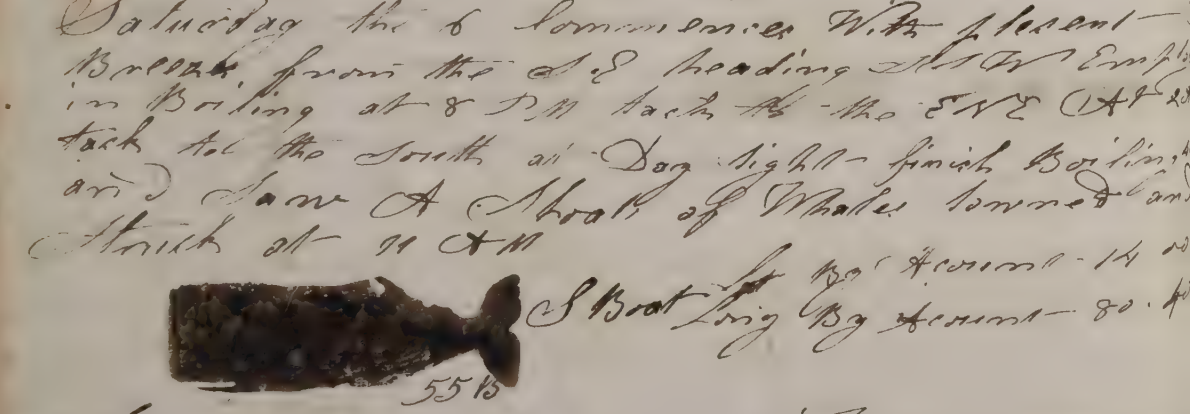 Saturday the 6 Commences With plesent
Breeze from the S.E heading SSW Empl
in Boiling at 8 PM tack to the ENE At
tack to the South at Day light finish Boilin
and Saw A Shoal of Whales lowered and
Struck at 11 AM
Lt By Acount - 14 00
S Boat Long By Acount - 80.4
55 B